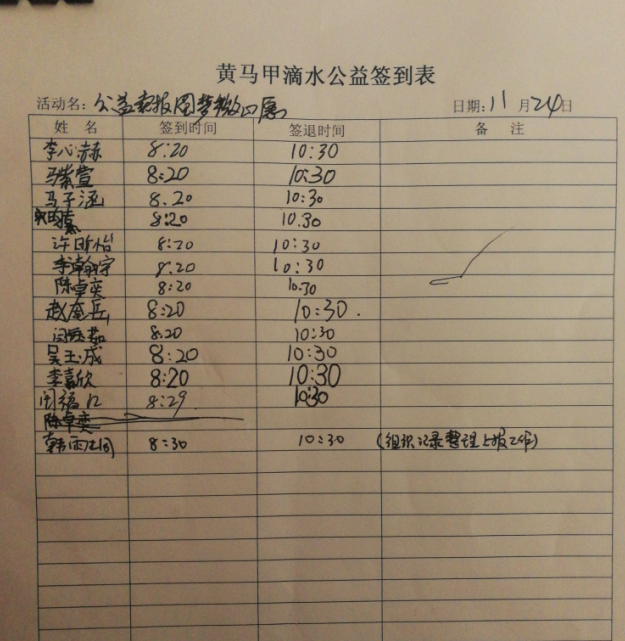 黄马甲滴水公益签到表
活动名: 公益卖报圆梦微心愿 日期: 11 月 24 日
姓 名 签到时间 签退时间 备 注
李心赫 8:20 10:30
马紫萱 8:20 10:30
马子涵 8.20 10:30
8:20 10.30
许昕怡 8:20 10:30
李瀚宇 8.20 10:30
陈卓奕 8:20 10.30
赵奎岳 8:20 10:30.
8.20 10:30
吴玉成 8:20 10:30
李嘉欣 8:20 10:30
8:29 10:30
陈卓奕
韩 8:30 10:30 (组织记录整理上报工作)